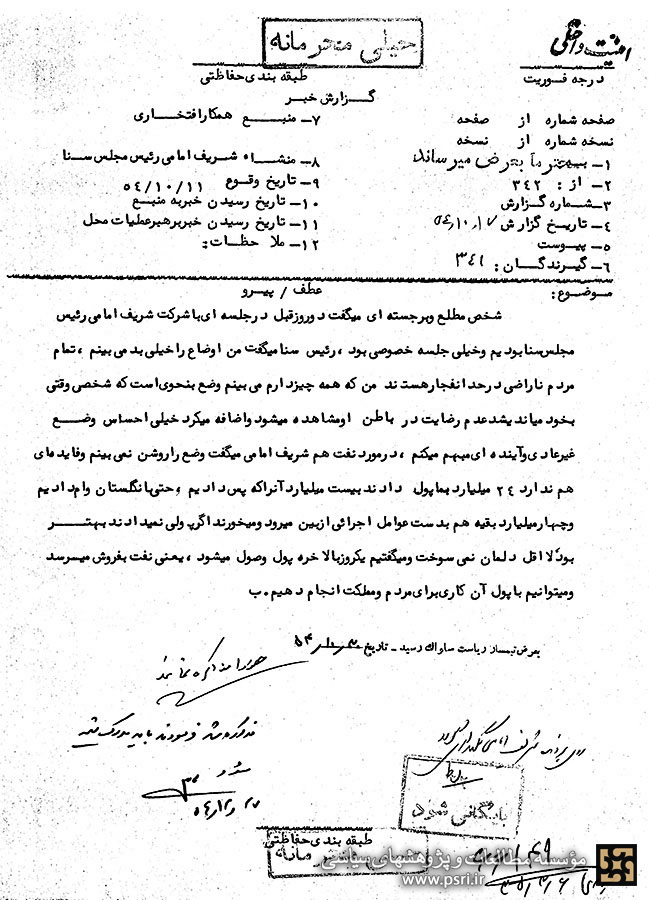 خیلی محرمانه
امنیت داخلی
درجه فوریت
طبقه بندی حفاظتی
گزارش خبر
صفحه شماره از صفحه
نسخه شماره از نسخه
۱- بعرض میرساند
۲- از : ۳۴۲
۳- شماره گزارش
۴- تاریخ گزارش ۵۴٫۱۰٫۱۷
۵- پیوست
۶- گیرندگان : ۳۴۱
۷- منبع همکار افتخاری
۸- منشاء شریف امامی رئیس مجلس سنا
۹- تاریخ وقوع ۵۴/۱۰/۱۱
۱۰- تاریخ رسیدن خبر به منبع
۱۱- تاریخ رسیدن خبر برهبر عملیات محل
۱۲- ملاحظات :
موضوع : عطف / پیرو
شخص مطلع وبرجسته ای میگفت دوروزقبل درجلسه ای با شرکت شریف امامی رئیس
مجلس سنا بودیم وخیلی جلسه خصوصی بود ، رئیس سنا میگفت من اوضاع را خیلی بد می بینم ، تمام
مردم ناراضی درحد انفجارهستند من که همه چیزدارم می بینم وضع بنحوی است که شخصی وقتی
بخود میاندیشد عدم رضایت در باطن اومشاهده میشود واضافه میکرد خیلی احساس وضع
غیرعادی وآینده ای مبهم میکنم ، درمورد نفت هم شریف امامی میگفت وضع را روشن نمی بینم وفایده ای
هم ندارد ۲۴ میلیارد بما پول دادند بیست میلیارد آنرا که پس دادیم ، وحتی بانگلستان وام دادیم
وچهار میلیارد بقیه هم بدست عوامل اجرائی ازبین میرود ومیخورند اگر پولی نمیدادند بهتر
بود لااقل دلمان نمی سوخت ومیگفتیم یکروزبالاخره پول وصول میشود ، یعنی نفت بفروش میرسد
ومیتوانیم با پول آن کاری برای مردم ومملکت انجام دهیم . ب
بعرض تیمسار ریاست ساواک رسید - تاریخ
مذاکره شد فرمودند باید مدرک
بایگانی شود
طبقه بندی حفاظتی
خیلی محرمانه
مؤسسه مطالعات و پژوهشهای سیاسی
www.psri.ir